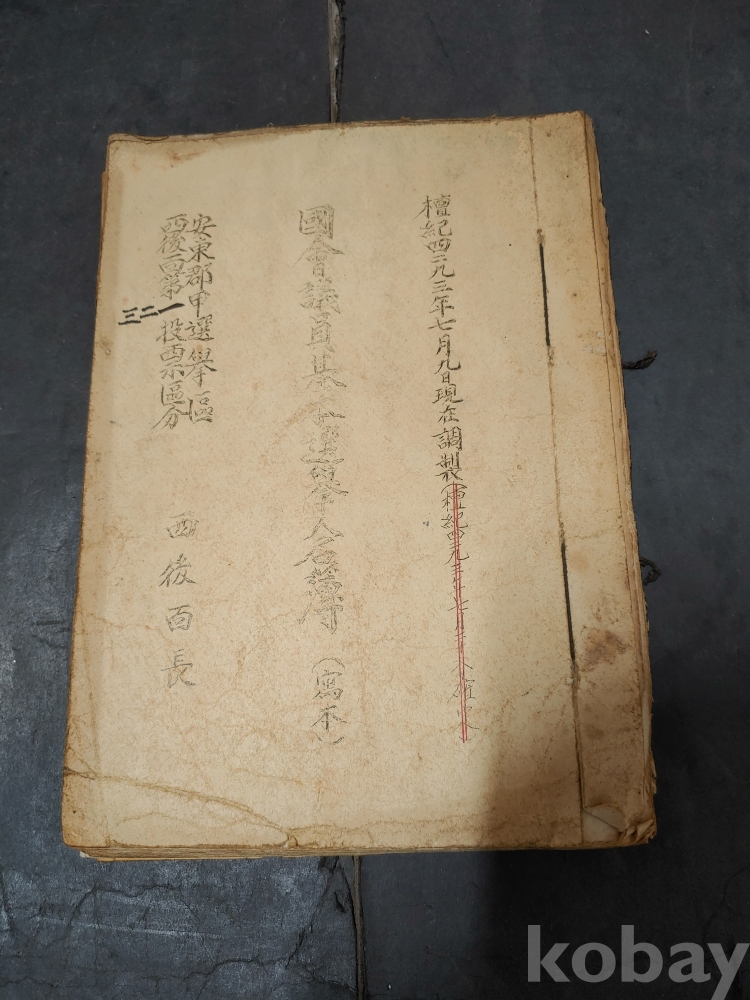 檀紀四二九三年七月九日現在調製(檀紀四二九三年七月
國會議員基本選擧人名簿(寫本)
安東郡甲選擧區
西後面第一二三投票區分
西後面長
kobay